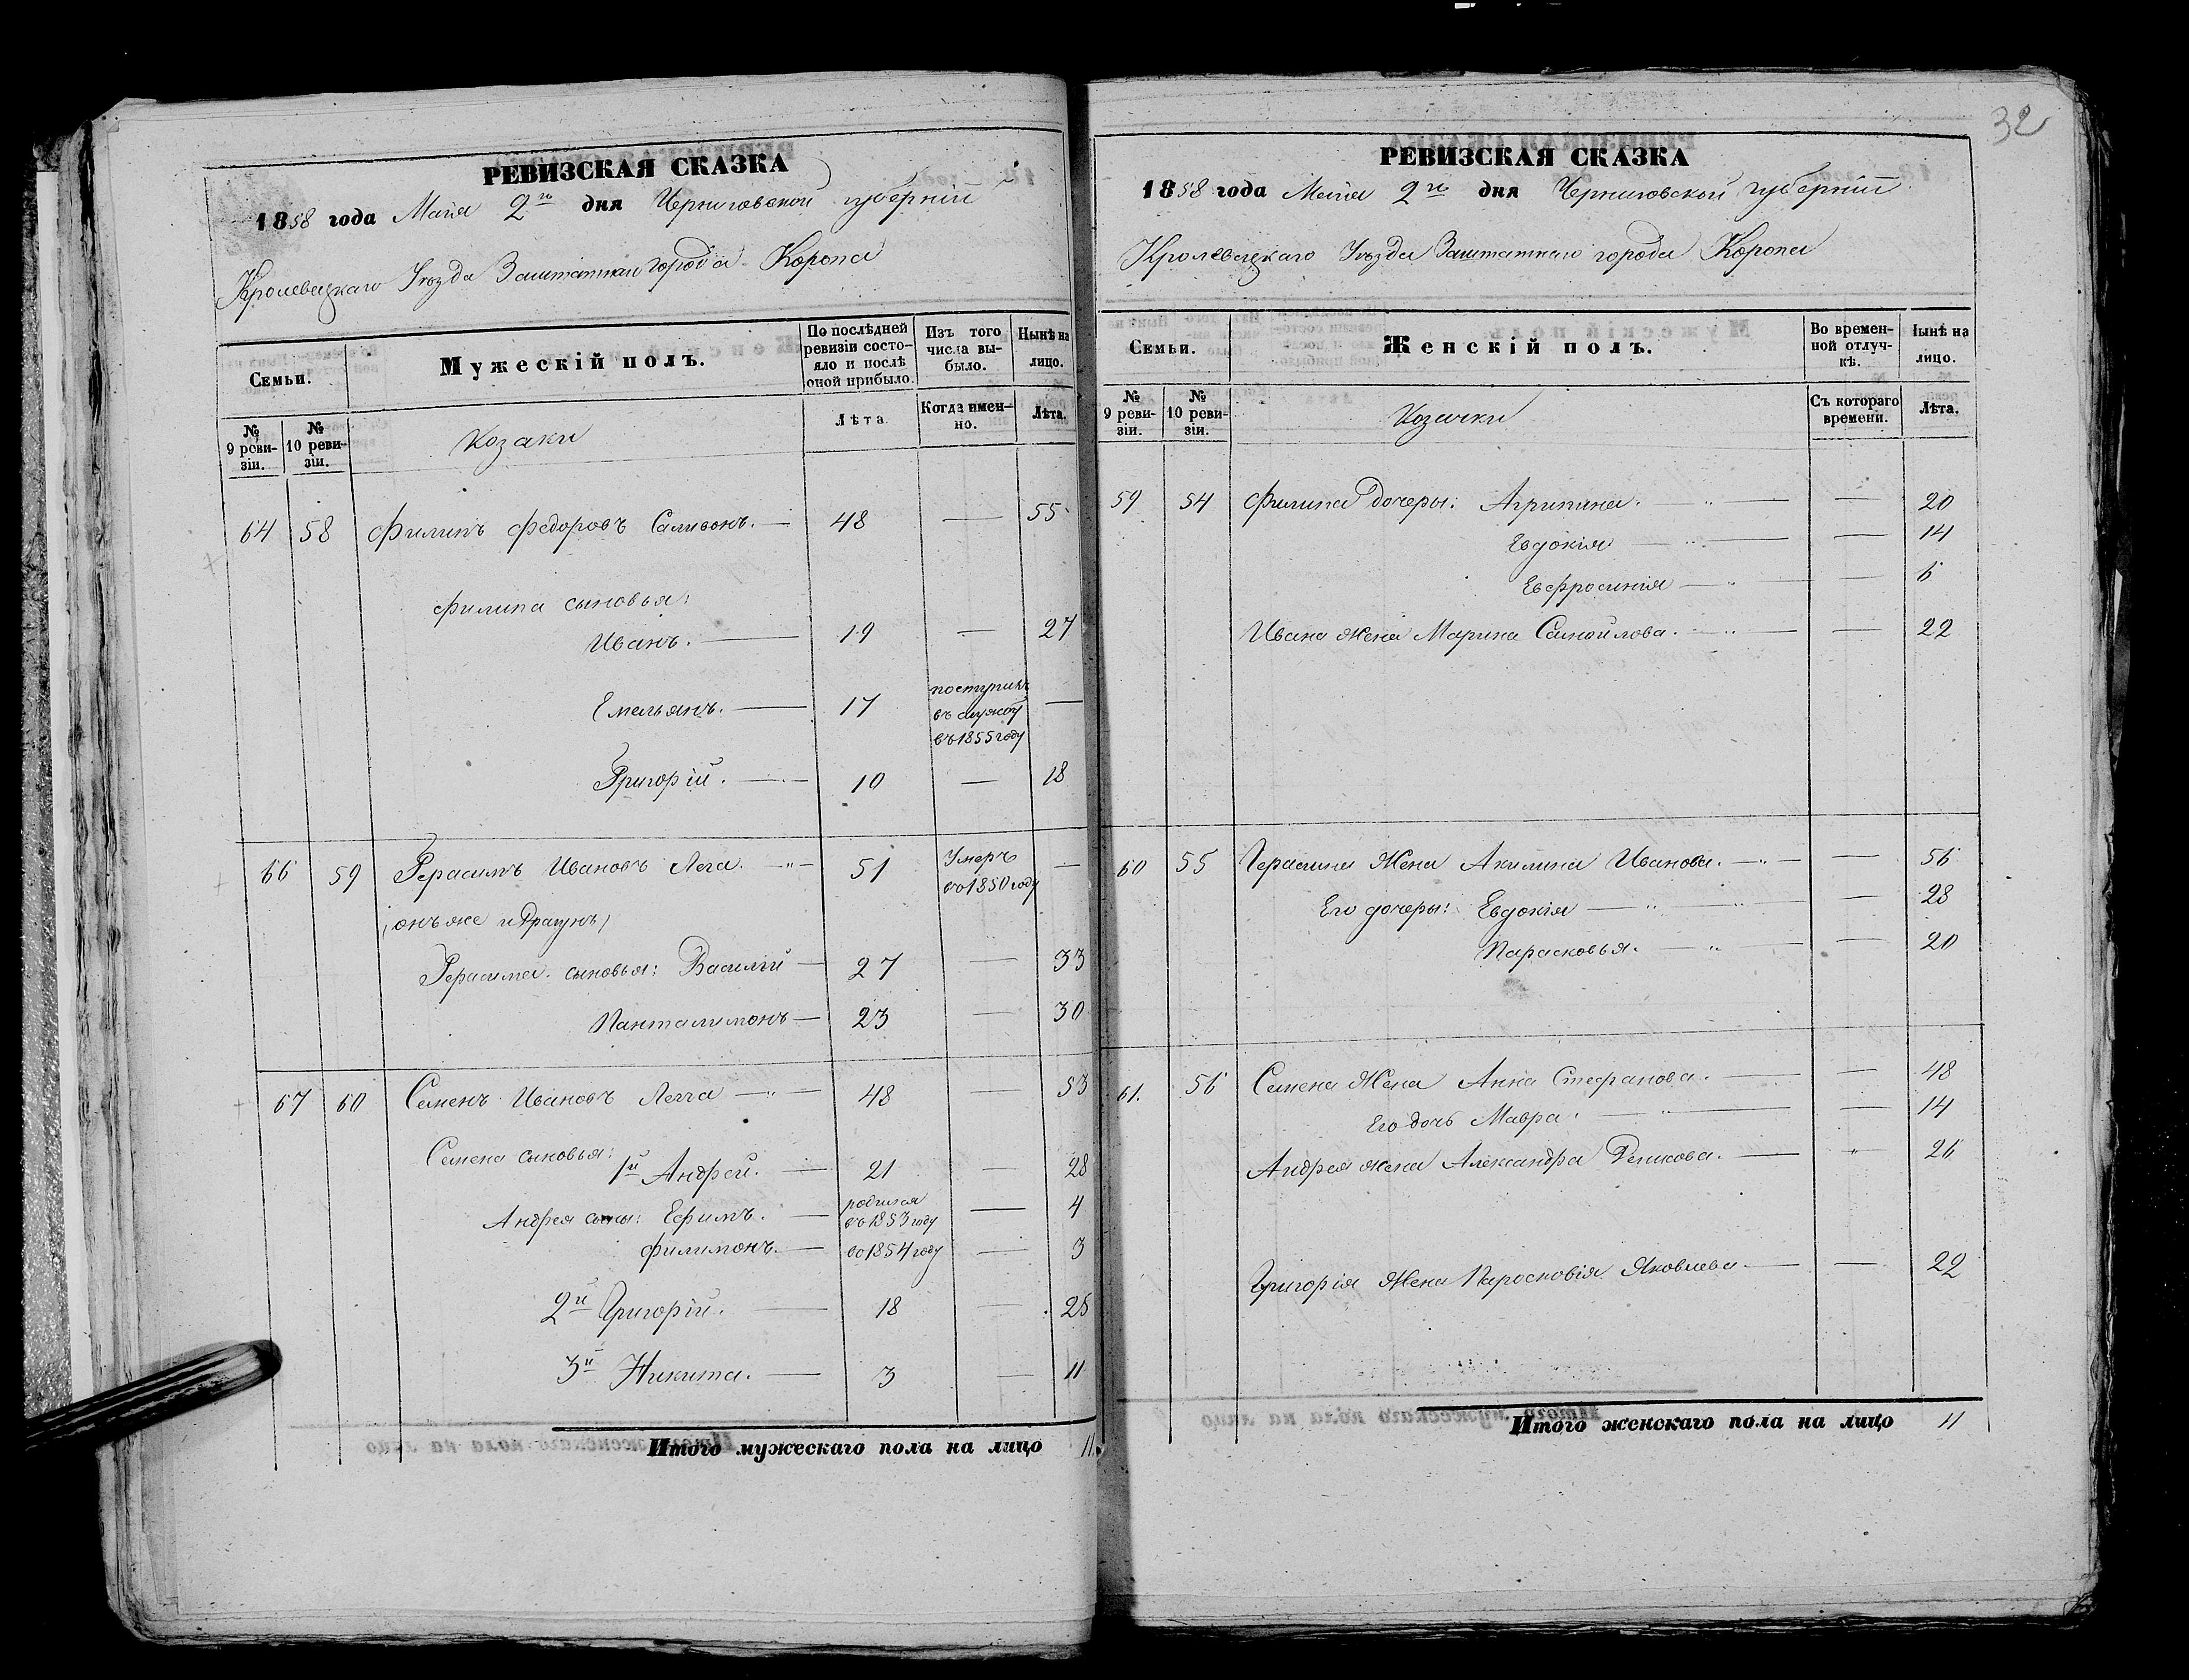 32
РЕВИЗСКАЯ СКАЗКА
1858 года Мая 2го дня Черниговской губерніи
Кролевецкаго Уѣзда Заштатнаго города Коропа
Семьи.
Мужескій полъ.
По послѣдней ревизіи состояло и послѣ оной прибыло.
Изъ того числа выбыло.
Нынѣ на лицо.
№ 9 ревизіи.
№ 10 ревизіи.
Козаки
Лѣта
Когда именно.
Лѣта.
64 58 Филипъ Федоровъ Саливонъ. — 48 — 55
Филипа сыновья:
Иванъ. — 19 — 27
Емельянъ. — 17 поступилъ въ службу въ 1855 году —
Григорій. — 10 — 18
66 59 Герасимъ Ивановъ Лега. — 51 Умеръ въ 1850 году —
(онъ же и Драгунъ)
Герасима сыновья: Василій — 27 — 33
Панталимонъ — 23 — 30
67 60 Семенъ Ивановъ Легга — 48 — 53
Семена сыновья:
1й Андрей. — 21 — 28
Андрея сыны: Ефимъ. — родился въ 1853 году — 4
Филимонъ. — во 1854 году — 3
2й Григорій. — 18 — 25
3й Никита. — 3 — 11
Итого мужескаго пола на лицо 11.
РЕВИЗСКАЯ СКАЗКА
1858 года Мая 2го дня Черниговской губерніи
Кролевецкаго Уѣзда Заштатнаго города Коропа
Семьи.
Женскій полъ.
Во временной отлучкѣ.
Нынѣ на лицо.
№ 9 ревизіи.
№ 10 ревизіи.
Козачки
Съ котораго времени.
Лѣта.
59 54 Филипа дочеры: Агрипина. — — 20
Евдокія — — 14
Евфросинія — — 6
Ивана жена Марина Самойлова. — — 22
60 55 Герасима Жена Акилина Иванова. — — 56
Его дочеры: Евдокія — — 28
Парасковья. — — 20
61. 56 Семена Жена Анна Стефанова. — — 48
Его дочь Мавра. — — 14
Андрея жена Александра Деликова. — " 26
Григорія Жена Паросковія Яковлева — — 22
Итого женскаго пола на лицо 11